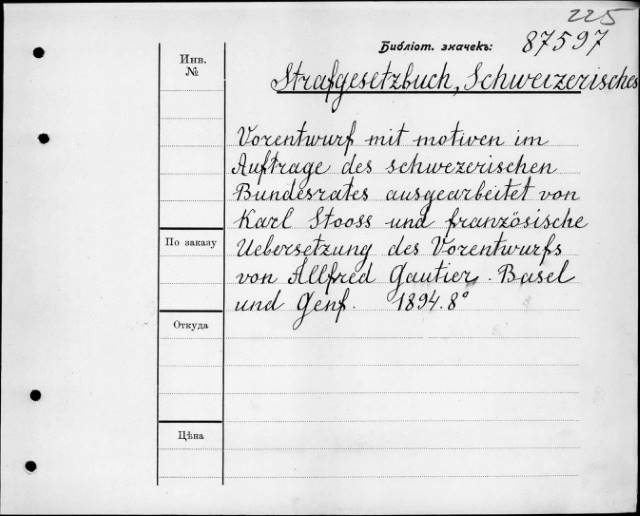 225
Библіот. значекъ: 87597
Инв. №
Strafgesetzbuch, Schweizerisches
Vorentwurf mit motiven im
Auftrage des schwezerischen
Bundesrates ausgearbeitet von
Karl Stooss und französische
По заказу
Uebersetzung des Vorentwurfs
von Allfred Gautier. Basel
und Genf. 1894. 8°
Откуда
Цѣна